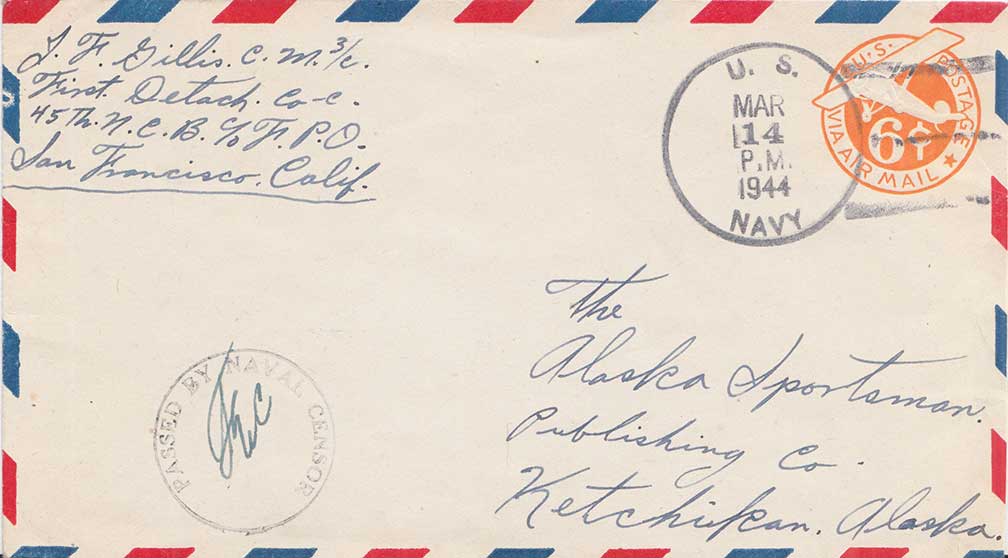 J. F. Gillis. C. M. 3/c.
First Detach. Co-C.
45Th. N. C. B. c/o F. P. O.
San Francisco. Calif.
U. S.
MAR
14
P.M.
1944
NAVY
U.S. POSTAGE
6¢
VIA AIR MAIL
The
Alaska Sportsman.
Publishing Co.
Ketchikan. Alaska.
PASSED BY NAVAL CENSOR